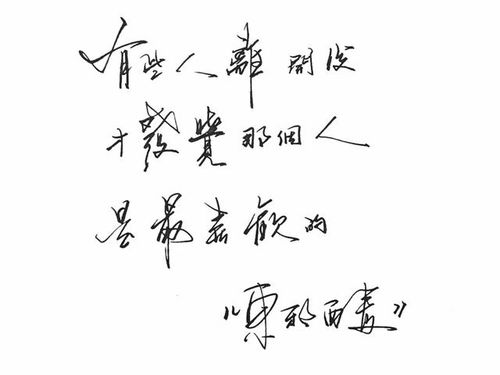 有些人離開後
才發覺那個人
是最喜歡的
《東邪西毒》